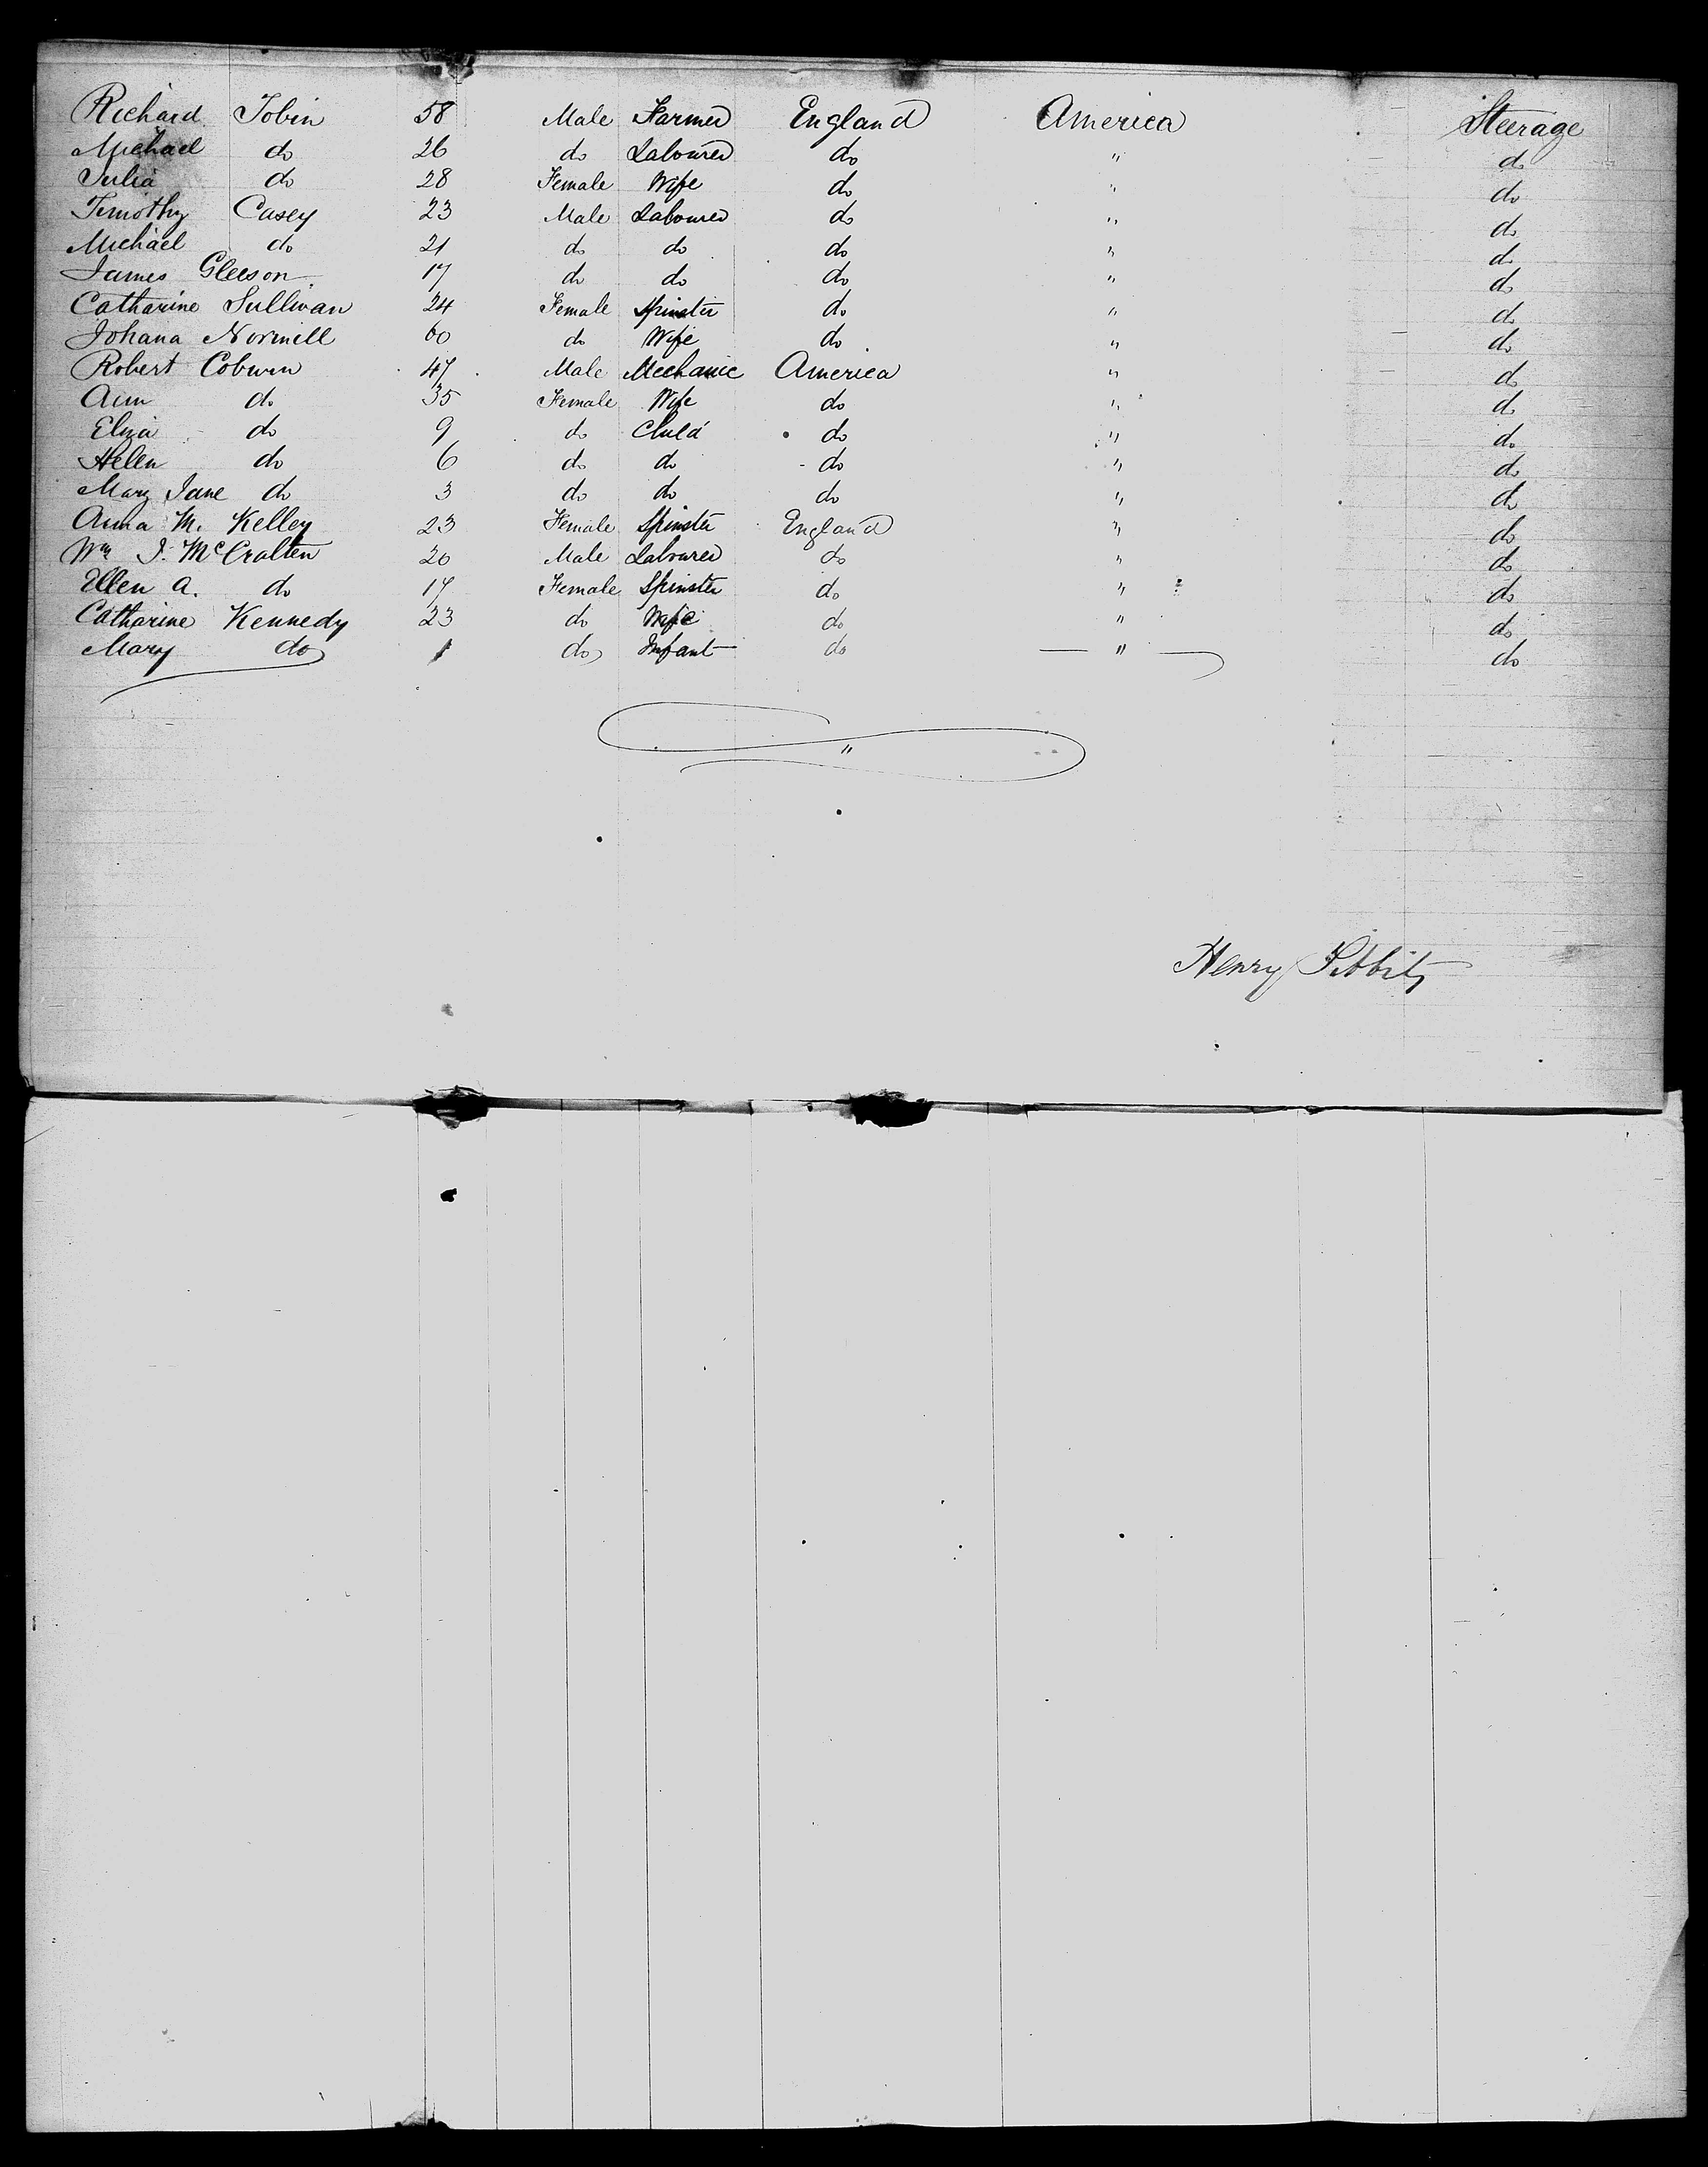 Richard Tobin 58 Male Farmer England America Steerage
Michael do 26 do Labourer do " do
Julia do 28 Female Wife do " do
Timothy Casey 23 Male Labourer do " do
Michael do 21 do do do " do
James Gleeson 17 do do do " do
Catharine Sullivan 24 Female Spinster do " do
Johana Normill 60 do Wife do " do
Robert Coburn 47 Male Mechanic America " do
Ann do 35 Female Wife do " do
Eliza do 9 do Child do " do
Helen do 6 do do do " do
Mary Jane do 3 do do do " do
Anna M. Kelley 23 Female Spinster England " do
Wm J. McCralten 20 Male Labourer do " do
Ellen A. do 17 Female Spinster do " do
Catharine Kennedy 23 do Wife do " do
Mary do 1 do Infant do " do
"
Henry Tibbits